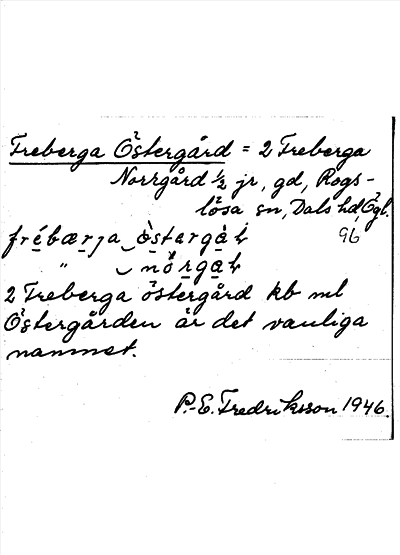 Freberga Östergård = 2 Freberga
Norrgård ½ jr, gd, Rogs-
lösa sn, Dals hd, Ögl.
96
2 Freberga östergård kb ml
Östergården är det vanliga
namnet.
P.-E. Fredriksson 1946.